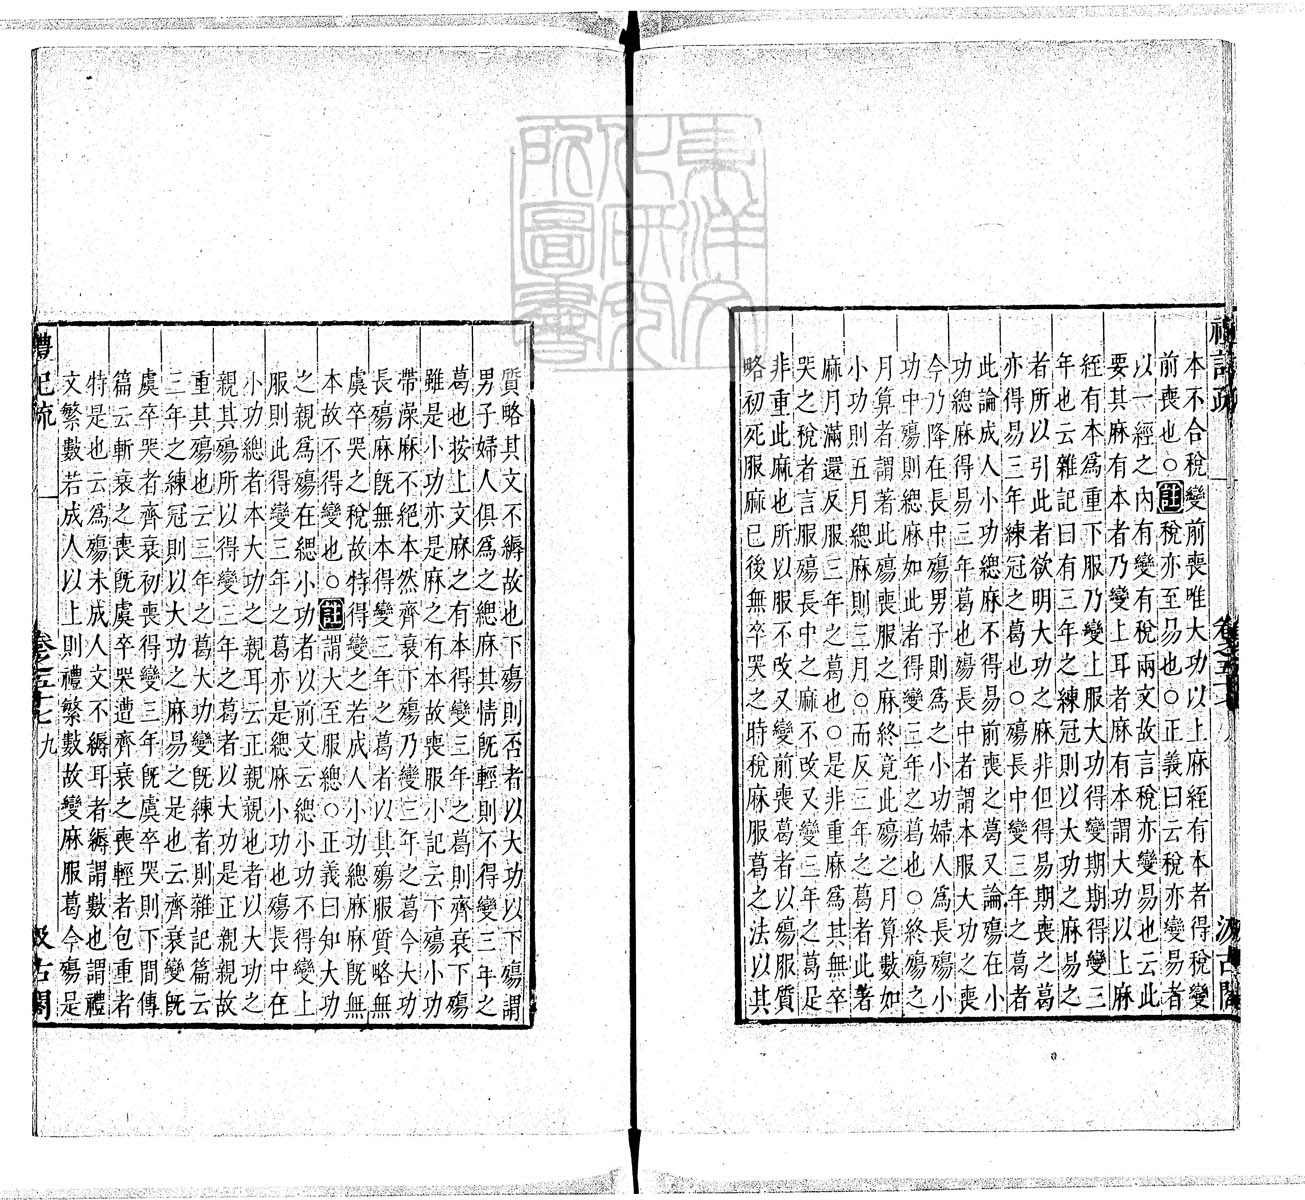 禮記疏 卷之五十七 八 汲古閣
本不合稅變前喪唯大功以上麻絰有本者得稅變
前喪也○註稅亦至易也○正義曰云稅亦變易者
以一經之內有變有稅兩文故言稅亦變易也云此
要其麻有本者乃變上耳者麻有本謂大功以上麻
絰有本爲重下服乃變上服大功得變期期得變三
年也云雜記曰有三年之練冠則以大功之麻易之
者所以引此者欲明大功之麻非但得易期喪之葛
亦得易三年練冠之葛也○殤長中變三年之葛者
此論成人小功緦麻不得易前喪之葛又論殤在小
功緦麻得易三年葛也殤長中者謂本服大功之喪
今乃降在長中殤男子則爲之小功婦人爲長殤小
功中殤則緦麻如此者得變三年之葛也○終殤之
月算者謂著此殤喪服之麻終竟此殤之月算數如
小功則五月緦麻則三月○而反三年之葛者此著
麻月滿還反服三年之葛也○是非重麻爲其無卒
哭之稅者言服殤長中之麻不改又變三年之葛足
非重此麻也所以服不改又變前喪葛者以殤服質
略初死服麻已後無卒哭之時稅麻服葛之法以其
質略其文不縟故也下殤則否者以大功以下殤謂
男子婦人俱爲之緦麻其情旣輕則不得變三年之
葛也按上文麻之有本得變三年之葛則齊衰下殤
雖是小功亦是麻之有本故喪服小記云下殤小功
帶澡麻不絕本然齊衰下殤乃變三年之葛今大功
長殤麻旣無本得變三年之葛者以其殤服質略無
虞卒哭之稅故特得變之若成人小功緦麻麻旣無
本故不得變也○註謂大至服緦○正義曰知大功
之親爲殤在緦小功者以前文云緦小功不得變上
服則此得變三年之葛亦是緦麻小功也殤長中在
小功緦者本大功之親耳云正親親也者以大功之
親其殤所以得變三年之葛者以大功是正親親故
重其殤也云三年之葛大功變旣練者則雜記篇云
三年之練冠則以大功之麻易之是也云齊衰變旣
虞卒哭者齊衰初喪得變三年旣虞卒哭則下間傳
篇云斬衰之喪旣虞卒哭遭齊衰之喪輕者包重者
特是也云爲殤未成人文不縟耳者縟謂數也謂禮
文繁數若成人以上則禮繁數故變麻服葛今殤是
禮記疏 卷之五十七 九 汲古閣
東洋文化研究所圖書